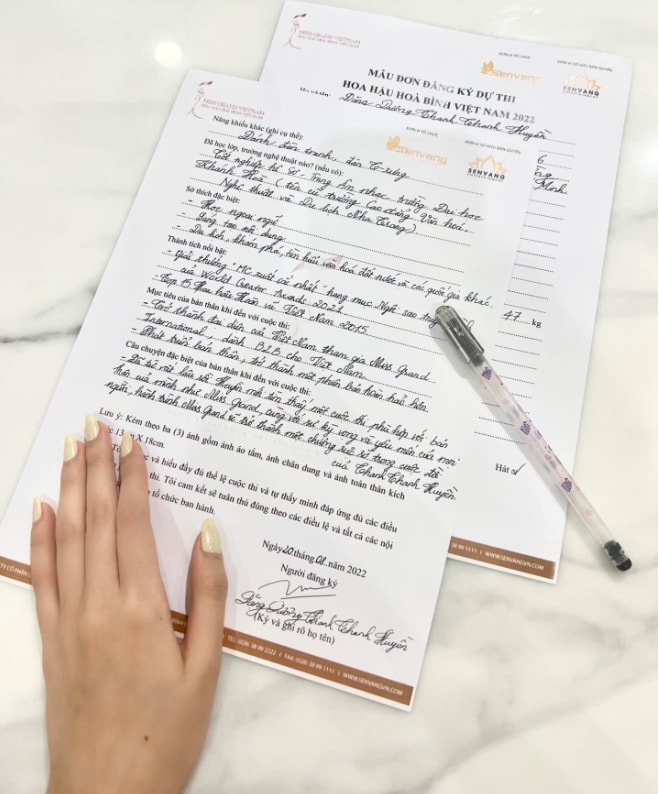 MISS GRAND VIETNAM
HOA HẬU HOÀ BÌNH VIỆT NAM
ĐƠN VỊ TỔ CHỨC
Senvang
SEN VANG
MẪU ĐƠN ĐĂNG KÝ DỰ THI
HOA HẬU HOÀ BÌNH VIỆT NAM 2022
Họ và tên: Đặng Dương Thanh Thanh Huyền
Minh
47 kg
Hát
MISS GRAND VIETNAM
HOA HẬU HOÀ BÌNH VIỆT NAM
ĐƠN VỊ TỔ CHỨC
Senvang
SEN VANG
Năng khiếu khác (ghi cụ thể):
Đánh đàn tranh, đàn T'rưng
Đã học lớp, trường nghệ thuật nào? (nếu có):
Tốt nghiệp hệ Sơ - Trung Âm nhạc trường Đại học
Khánh Hoà (tên cũ trường Cao đẳng Văn hoá,
Nghệ thuật và Du lịch Nha Trang)
Sở thích đặc biệt:
- Học ngoại ngữ
- Sáng tạo nội dung
- Du lịch, khám phá, tìm hiểu văn hoá đất nước và các quốc gia khác
Thành tích nổi bật:
- Giải thưởng "MC xuất sắc nhất" hạng mục Ngôi sao
của World Creator Awards 2021
- Top 15 Hoa hậu Hoàn vũ Việt Nam 2015
Mục tiêu của bản thân khi đến với cuộc thi:
- Trở thành đại diện của Việt Nam tham gia Miss Grand
International, dành B2B cho Việt Nam
- Phát triển bản thân, trở thành một phiên bản hoàn hảo hơn
Câu chuyện đặc biệt của bản thân khi đến với cuộc thi:
- Đã từ rất lâu rồi Huyền mới tìm thấy một cuộc thi phù hợp với bản
thân của mình như Miss Grand, cùng với sự kỳ vọng và yêu mến của mọi
người, hành trình Miss Grand sẽ trở thành một chương rực rỡ trong cuộc đời
của Thanh Thanh Huyền
Lưu ý: Kèm theo ba (3) ảnh gồm ảnh áo tắm, ảnh chân dung và ảnh toàn thân kích
13 X 18cm.
và hiểu đầy đủ thể lệ cuộc thi và tự thấy mình đáp ứng đủ các điều
thi. Tôi cam kết sẽ tuân thủ đúng theo các điều lệ và tất cả các nội
tổ chức ban hành.
Ngày 20 tháng 08 năm 2022
Người đăng ký
Đặng Dương Thanh Thanh Huyền
(Ký và ghi rõ họ tên)
TEL: (028) 38 99 2222 | FAX: (028) 38 99 1111 | WWW.SENVANGVN.COM
38 99 1111 | WWW.SENVANGVN.COM